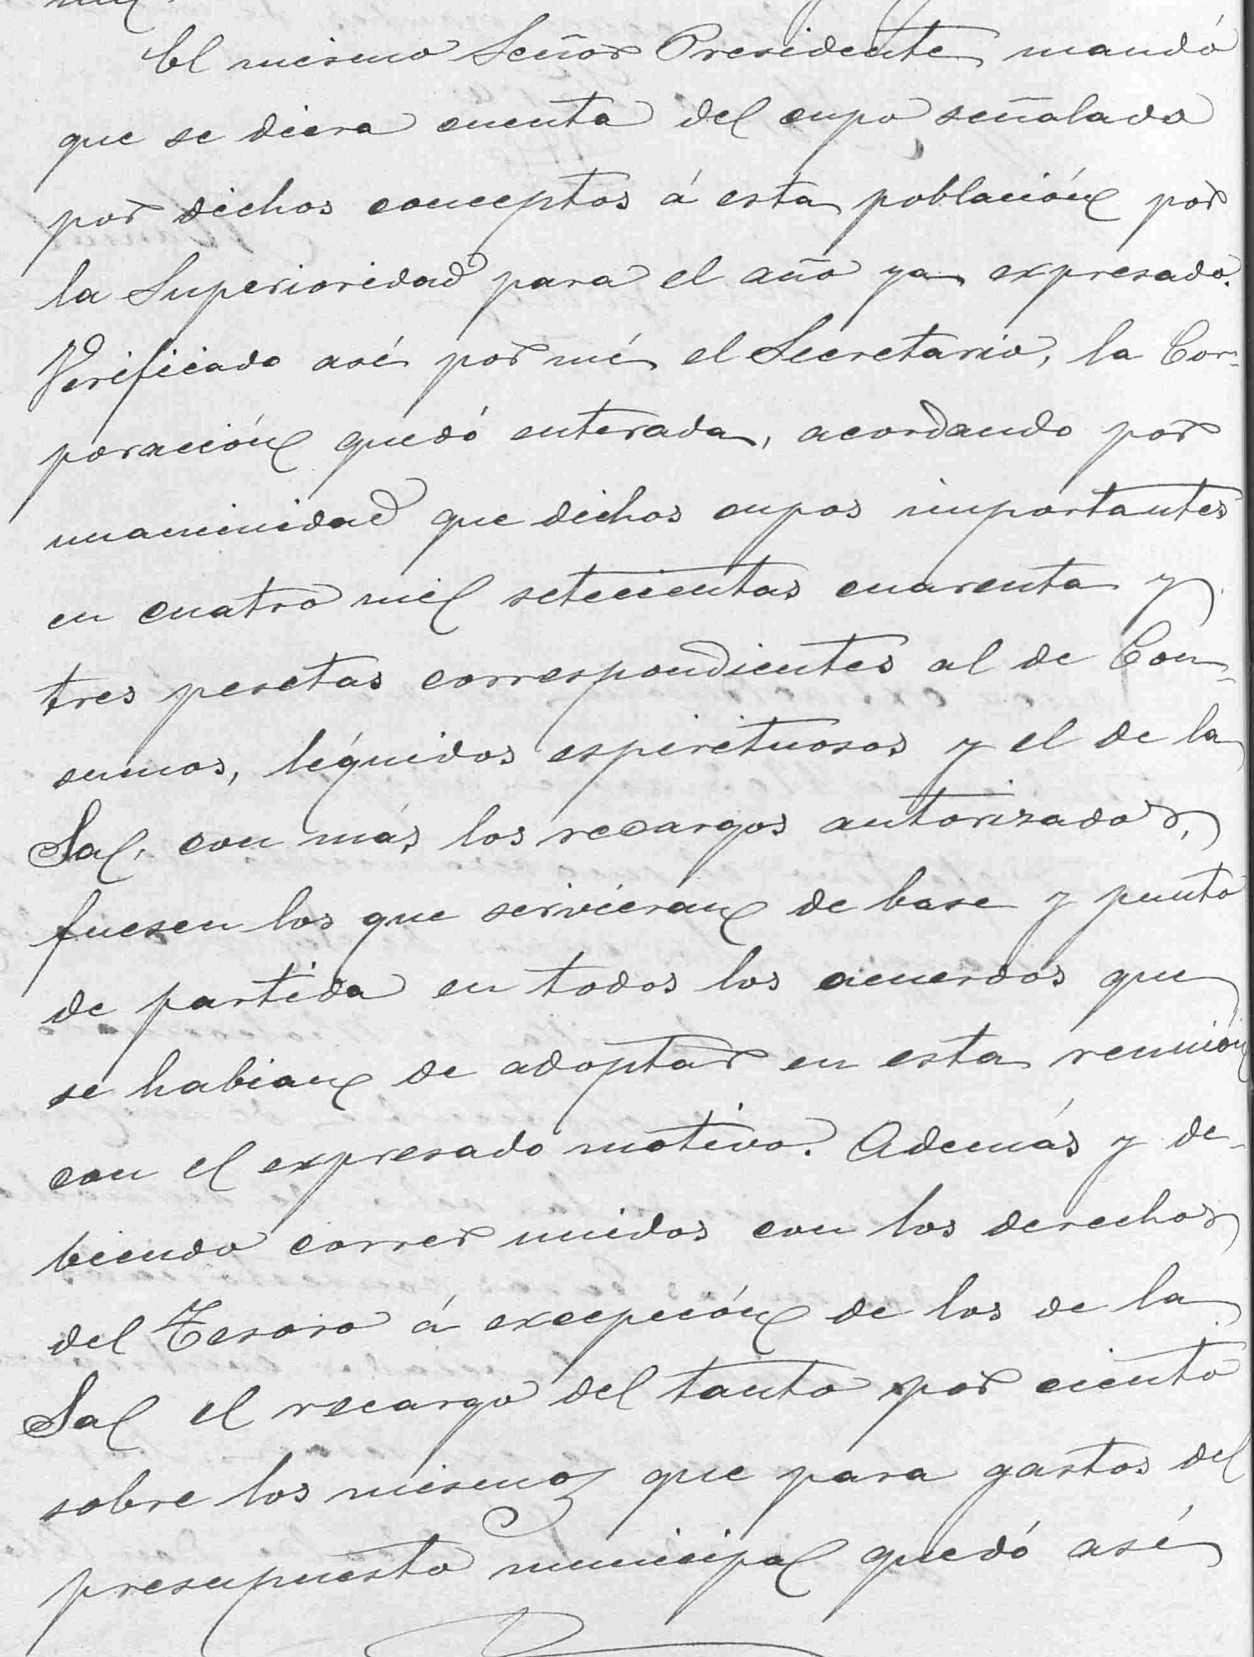 El mismo Señor Presidente mandó
que se diera cuenta del cupo señalado
por dichos conceptos á esta población por
la Superioridad para el año ya expresado.
Verificado así por mí el Secretario, la Cor-
poración quedó enterada, acordando por
unanimidad que dichos cupos importantes
en cuatro mil setecientas cuarenta y
tres pesetas correspondientes al de Con-
sumos, líquidos espirituosos y el de la
Sal, con más los recargos autorizados,
fuesen los que servieran de base y punto
de partida en todos los acuerdos que
se habian de adoptar en esta reunión
con el expresado motivo. Además y de-
biendo correr unidos con los derechos
del Tesoro á excepción de los de la
Sal el recargo del tanto por ciento
sobre los mismos que para gastos del
presupuesto municipal quedó así